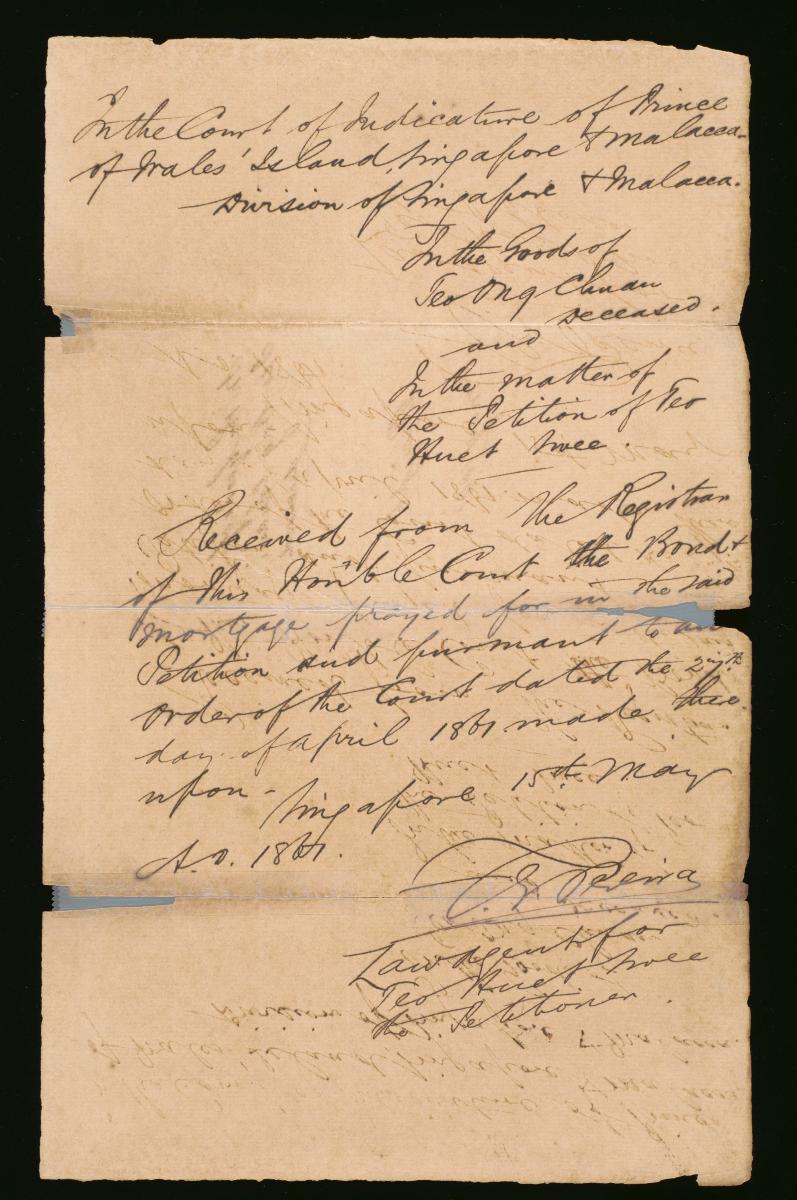 In the Court of Judicature of Prince
of Wales' Island, Singapore & Malacca.
Division of Singapore & Malacca.
In the Goods of
Teo Ong Chuan
Deceased.
and
In the matter of
the Petition of Teo
Huet Swee.
Received from the Registrar
of this Hon'ble Court the Bond &
mortgage prayed for in the said
Petition and pursuant to an
Order of the Court dated the
day of April 1861 made there
upon - Singapore 15th May
A.D. 1861.
Pereira
Law Agent for
Teo Huet Swee
the Petitioner.